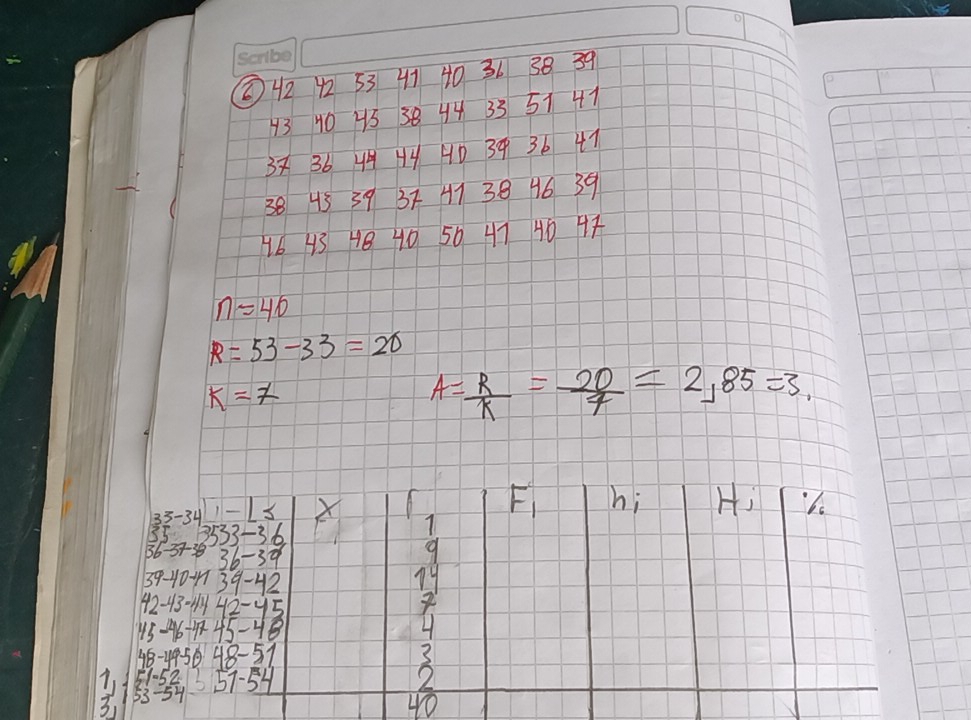 Scribe
② 42 42 53 41 40 36 38 39
43 40 45 38 44 33 51 41
37 36 44 44 40 39 36 41
38 43 39 37 41 38 46 39
46 43 48 40 50 41 40 47
n=40
R=53-33=20
K=7 A=R/K = 20/7 = 2,85=3.
Li-Ls X f Fi hi Hi %
33-34 35 33-36 1
36-37-38 36-39 9
39-40-41 39-42 14
42-43-44 42-45 7
45-46-47 45-48 4
48-49-50 48-51 3
51-52 53-54 51-54 2
40